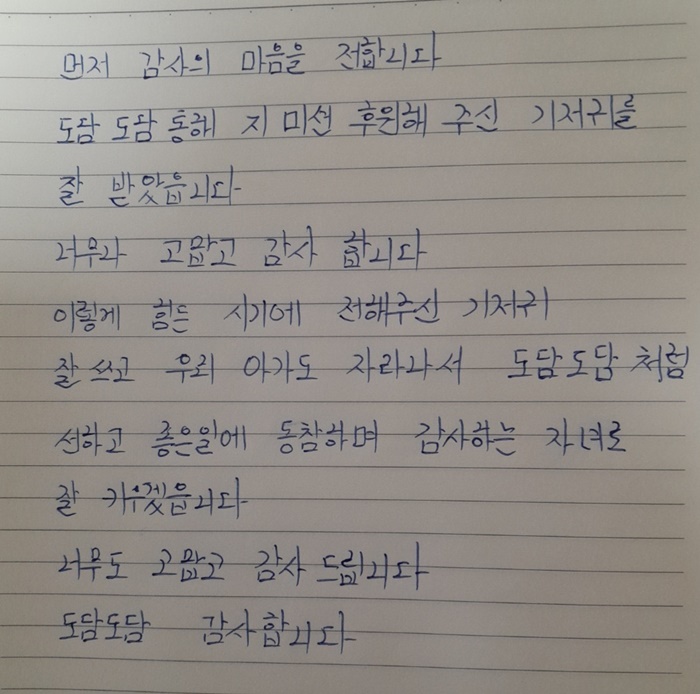 먼저 감사의 마음을 전합니다
도담 도담 통해 지 미션 후원해 주신 기저귀를
잘 받았읍니다
너무나 고맙고 감사 합니다
이렇게 힘든 시기에 전해주신 기저귀
잘 쓰고 우리 아가도 자라나서 도담도담 처럼
선하고 좋은일에 동참하며 감사하는 자녀로
잘 키우겠읍니다
너무도 고맙고 감사 드립니다
도담도담 감사합니다